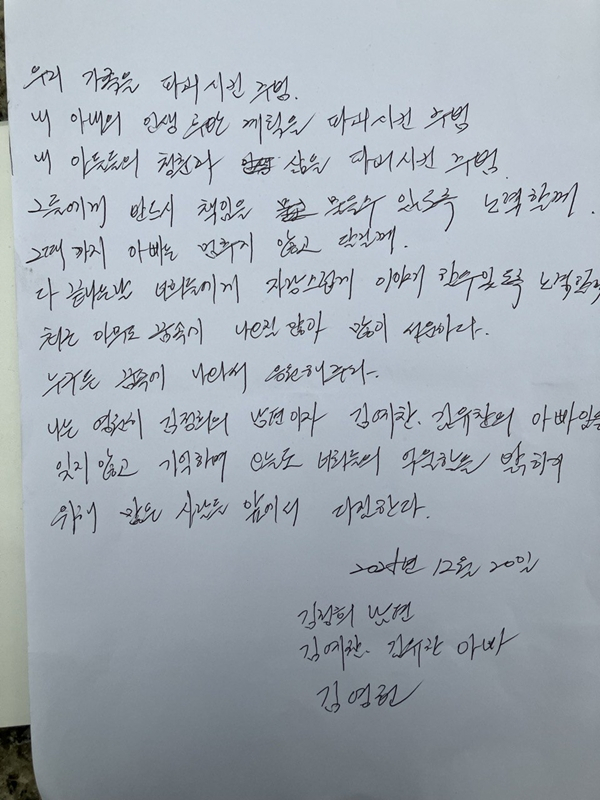 우리 가족을 파괴시킨 주범.
내 아내의 인생 후반 계획을 파괴시킨 주범
내 아들들의 청춘과 삶을 파괴시킨 주범.
그들에게 반드시 책임을 물을수 있도록 노력할께.
그때까지 아빠는 멈추지 않고 달릴께.
다 끝나는날 너희들에게 자랑스럽게 이야기 할수있도록 노력할께
아무도 꿈속에 나오질 않아 많이 서운하다.
누구든 꿈속에 나와서 응원해주라.
나는 영원히 김정희의 남편이자 김예찬. 김유찬의 아빠임을
잊지 않고 기억하며 오늘도 너희들의 억울함을 밝히기
위해 많은 사람들 앞에서 다짐한다.
12월 20일
김정희 남편
김예찬. 김유찬 아빠
김영헌